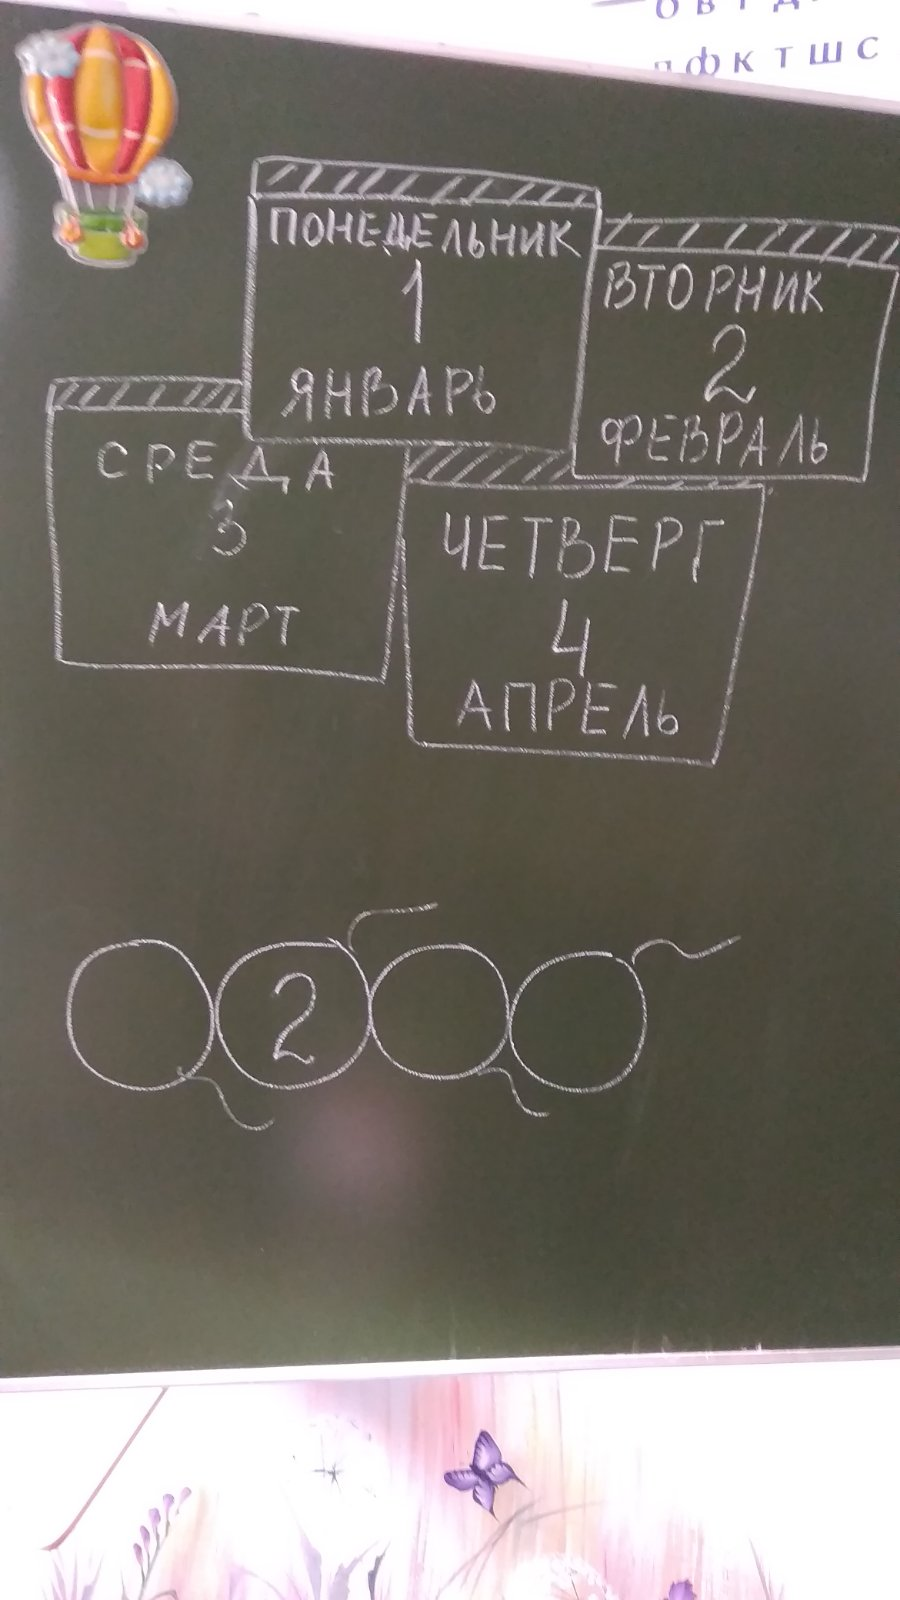 ф К Т Ш С
ПОНЕДЕЛЬНИК
1
ЯНВАРЬ
ВТОРНИК
2
ФЕВРАЛЬ
СРЕДА
3
МАРТ
ЧЕТВЕРГ
4
АПРЕЛЬ
2